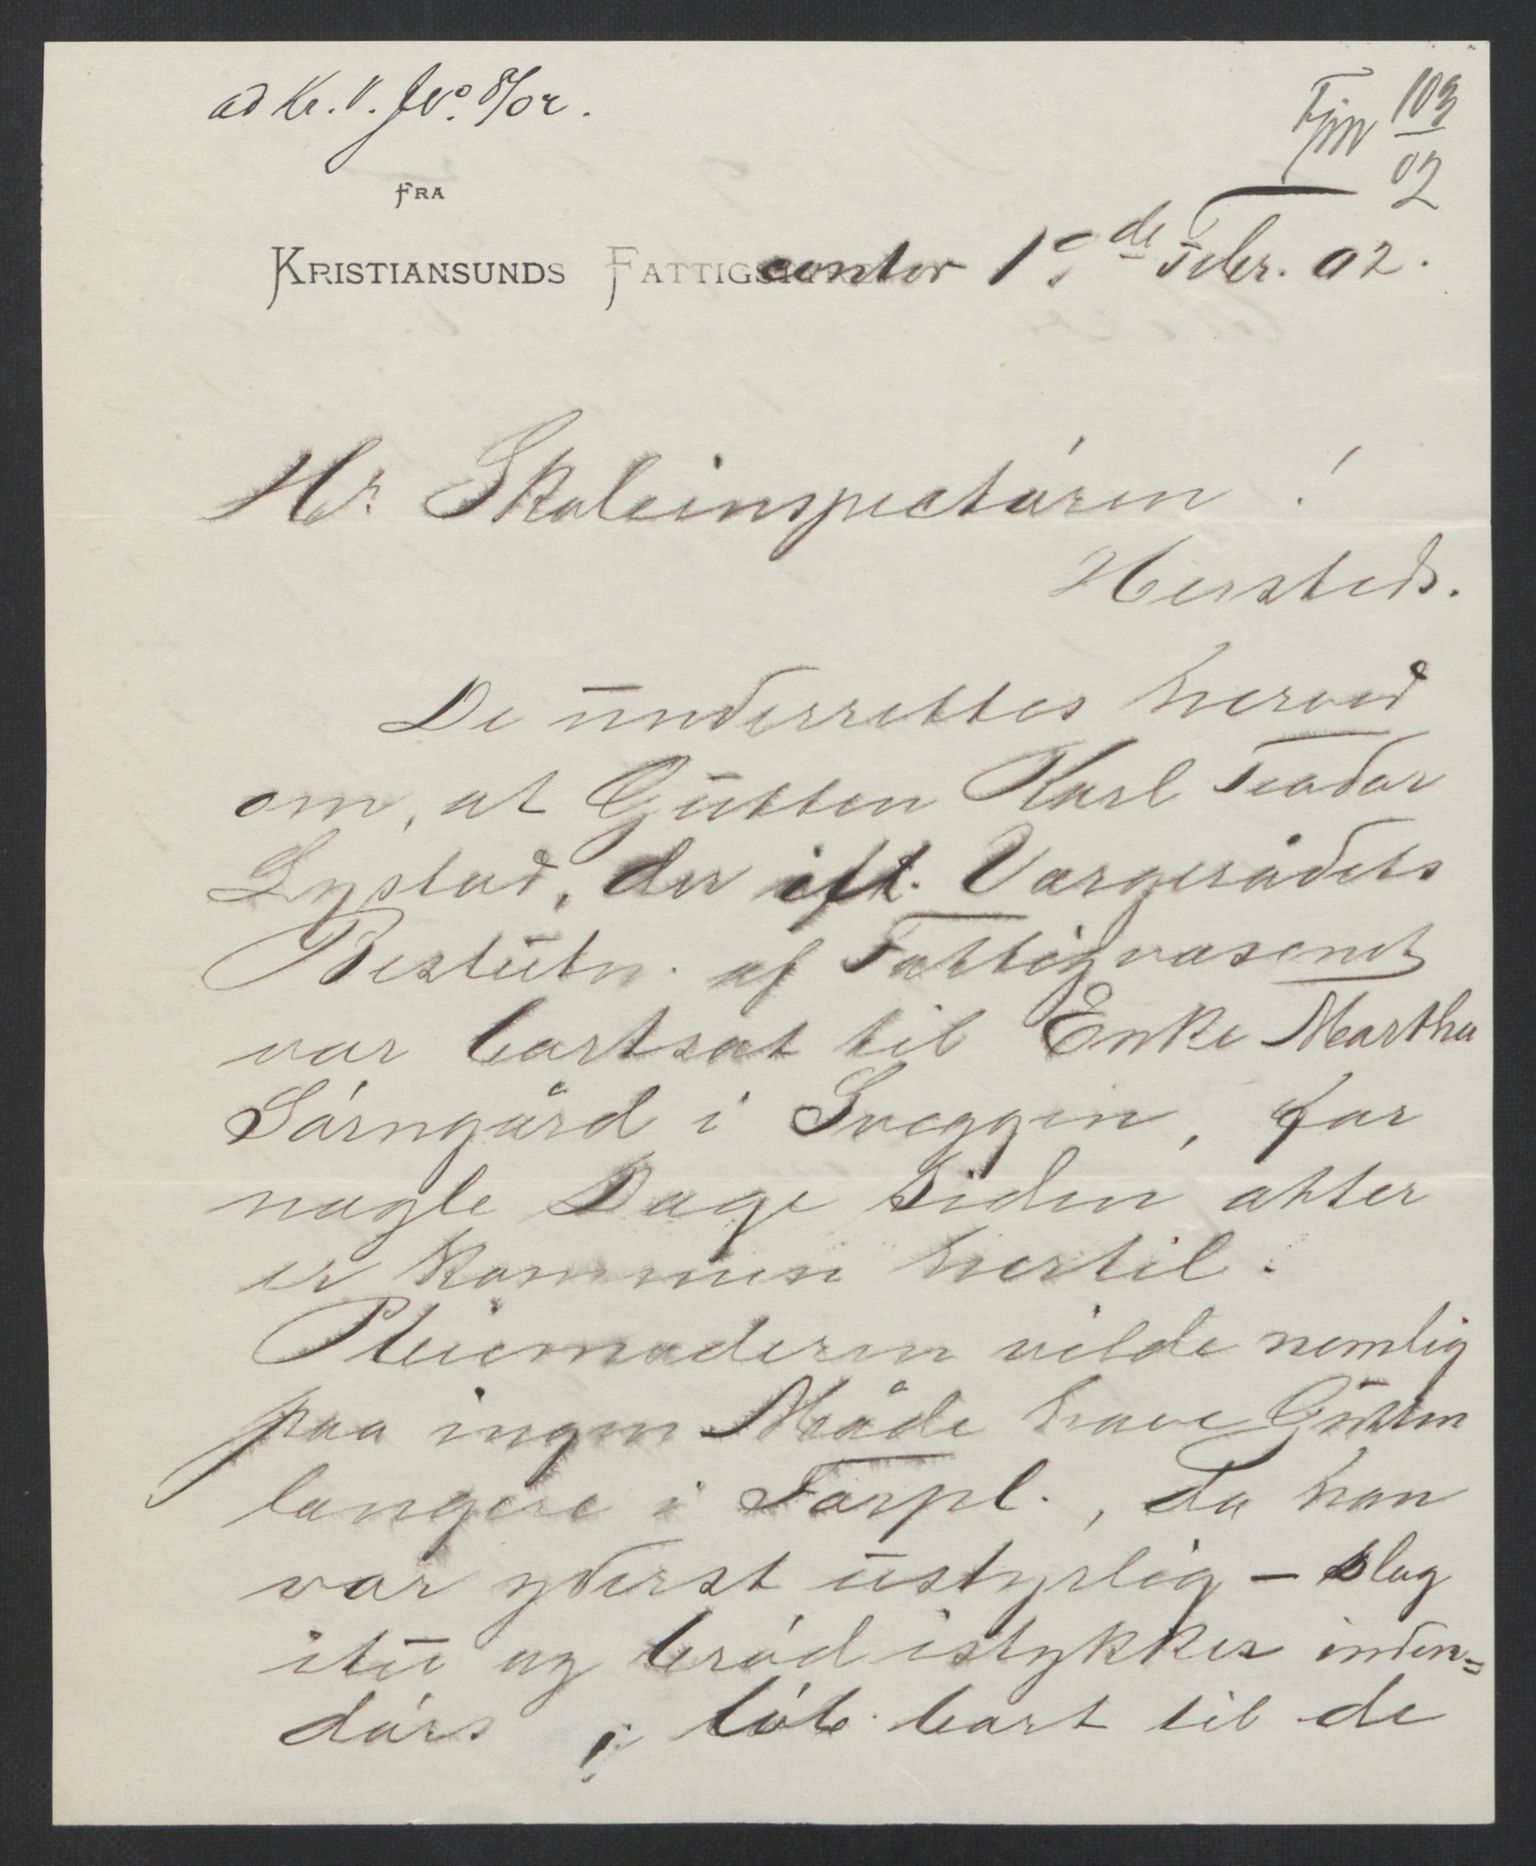 ad Kr. V. Jno. 8/02.
Fjm 103/02
FRA
KRISTIANSUNDS FATTIGcontor 19de Febr. 02.
Hr. Skoleinspectören!
Hersteds.
De underrettes herved
om, at Gutten Karl Teodor
Lystad, der ift. Vergerådets
Beslutn. af Fattigvæsenet
var bortsat til Enke Martha
Sörngård i Sveggen, for
nogle Dage siden atter
er kommen hertil.
Pleiemoderen vilde nemlig
paa ingen Måde have Gutten
længere i Forpl., da han
var yderst ustyrlig - slog
itu og bröd istykker inden=
dörs, löb bort til de